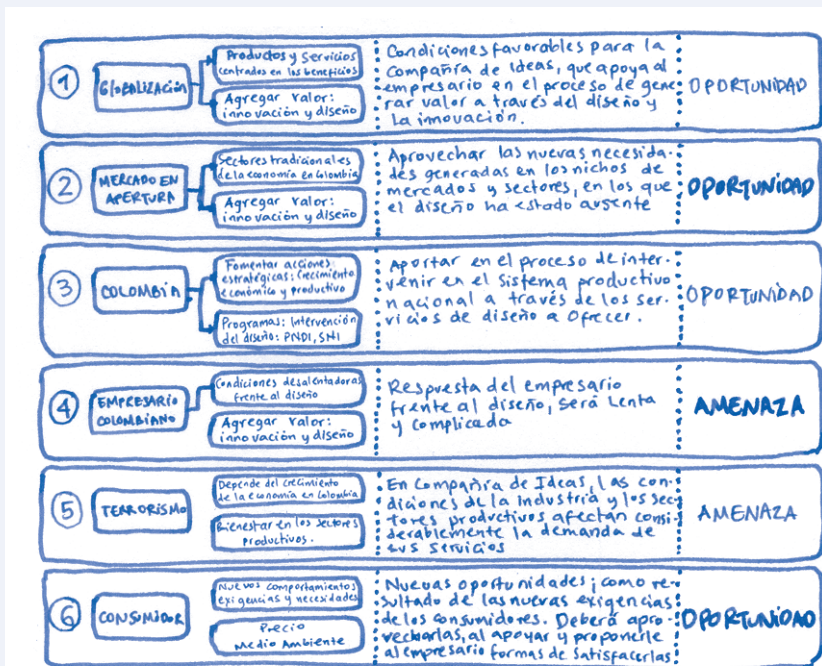 1
GlobALIZACIÓN
Productos y Servicios
centrados en los beneficios
Agregar valor:
innovación y diseño
Condiciones favorables para la
Compañía de Ideas, que apoya al
empresario en el proceso de gene
rar valor a través del diseño y
la innovación.
OPORTUNIDAD
2
MERCADO EN
APERTURA
Sectores tradicionales
de la economía en Colombia
Agregar valor:
innovación y diseño
Aprovechar las nuevas necesida-
des generadas en los nichos de
mercados y sectores, en los que
el diseño ha estado ausente
OPORTUNIDAD
3
COLOMBIA
Fomentar acciones
estratégicas: Crecimiento
económico y productivo
Programas: Intervención
del diseño: PNDI, SNI
Aportar en el proceso de inter-
venir en el Sistema productivo
nacional a través de los ser-
vicios de diseño a Ofrecer.
OPORTUNIDAD
4
EMPRESARIO
COLOMBIANO
Condiciones desalentadoras
frente al diseño
Agregar valor:
innovación y diseño
Respuesta del empresario
frente al diseño, Será Lenta
y complicada
AMENAZA
5
TERRORISMO
Depende del crecimiento
de la economía en Colombia
Bienestar en los sectores
productivos.
En Compañía de Ideas, las con-
diciones de la Industria y los sec
tores productivos afectan consi-
derablemente la demanda de
sus servicios
AMENAZA
6
CONSUMIDOR
Nuevos comportamientos
exigencias y necesidades
Precio
Medio Ambiente
Nuevas oportunidades; como re-
sultado de las nuevas exigencias
de los consumidores. Deberá apro-
vecharlas, al apoyar y proponerle
al empresario formas de Satisfacerlas
OPORTUNIDAD